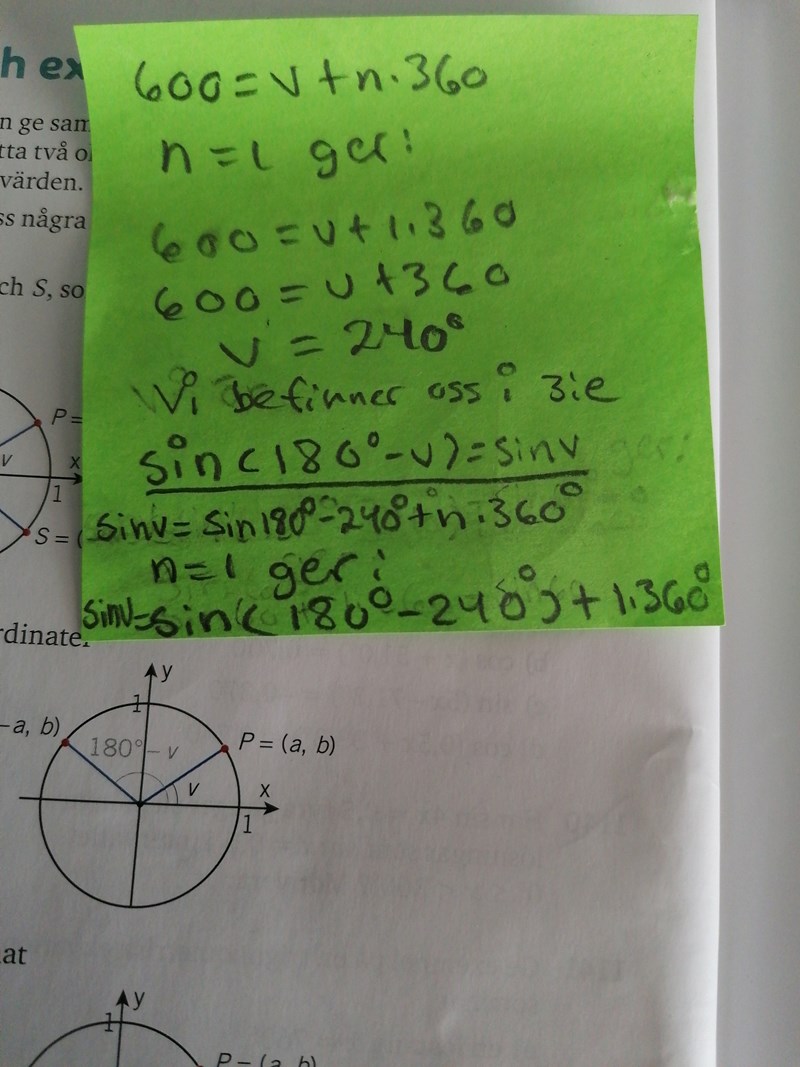 h ex
n ge sam
tta två o
värden.
ss några
ch S, so
600 = v + n · 360
n = 1 ger:
600 = v + 1 · 360
600 = v + 360
v = 240°
Vi befinner oss i 3:e
sin(180° - v) = sinv
sinv = sin 180° - 240° + n · 360°
n = 1 ger:
sinv = sin(180° - 240°) + 1 · 360°
P =
v
x
1
S = (
rdinate
y
1
–a, b)
180° – v
P = (a, b)
v
x
1
at
y
1
P = (a, b)